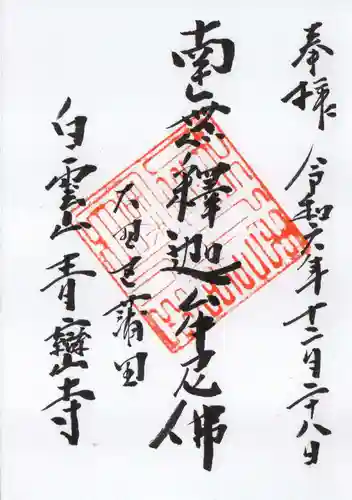 奉拝 令和六年十二月二十八日
南無釋迦牟尼佛
大野邑蒲田
白雲山青巒寺